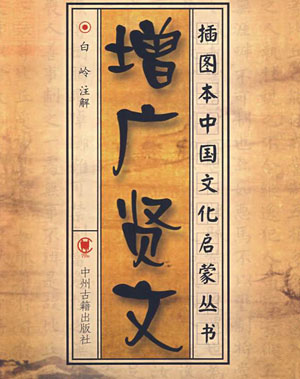 插图本中国文化启蒙丛书
增广贤文
白岭注解
中州古籍出版社